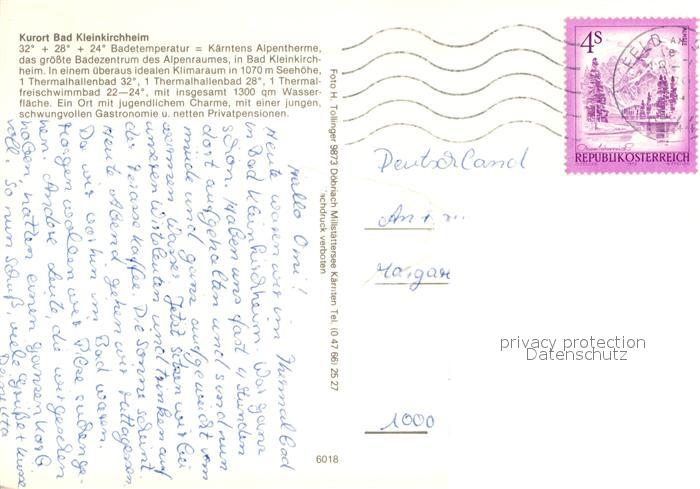 Kurort Bad Kleinkirchheim
32° + 28° + 24° Badetemperatur = Kärntens Alpentherme,
das größte Badezentrum des Alpenraumes, in Bad Kleinkirch-
heim. In einem überaus idealen Klimaraum in 1070 m Seehöhe,
1 Thermalhallenbad 32°, 1 Thermalhallenbad 28°, 1 Thermal-
freischwimmbad 22—24°, mit insgesamt 1300 qm Wasser-
fläche. Ein Ort mit jugendlichem Charme, mit einer jungen,
schwungvollen Gastronomie u. netten Privatpensionen.
Hallo Omi!
Heute waren wir im Thermalbad
in Bad Kleinkirchheim. War ganz
schön. Haben uns fast 4 Stunden
dort aufgehalten und sind nun
müde und ganz aufgeweicht vom
warmen Wasser. Jetzt sitzen wir bei
unseren Wirtsleuten und trinken auf
der Terasse Kaffee. Die Sonne scheint.
Heute Abend gehen wir
Da wir vorhin im Bad waren.
Morgen wollen wir Pilze suchen ge-
hen. Andere Leute, die wir gesehen
haben, hatten einen ganzen Korb
voll. So nun Schluß, viele Grüße + Küsse
Foto H. Tollinger 9873 Döbriach Millstättersee Kärnten Tel. (0 47 66) 25 27
Nachdruck verboten
6018
4s
REPUBLIK ÖSTERREICH
Deutschland
An
Margar
1000
privacy protection
Datenschutz